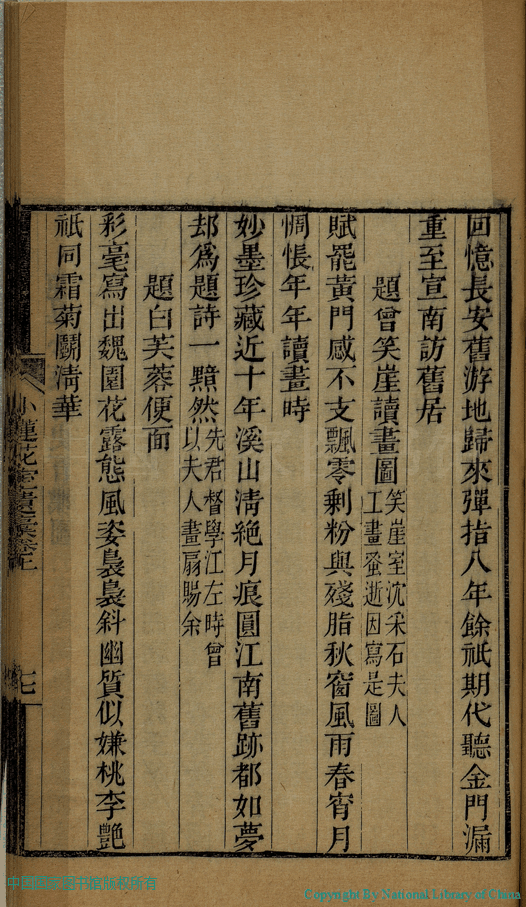 回憶長安舊游地歸來彈指八年餘祇期代聽金門漏
重至宣南訪舊居
題曾笑崖讀畫圖
笑崖室沈采石夫人
工畫蚤逝因寫是圖
賦罷黃門感不支飄零剩粉與殘脂秋窗風雨春宵月
惆悵年年讀畫時
妙墨珍藏近十年溪山淸絕月痕圓江南舊跡都如夢
却爲題詩一顯然
先君督學江左時曾
以夫人畫扇賜余
題白芙蓉便面
彩毫寫出魏園花露態風姿裊裊斜幽質似嫌桃李艷
祇同霜菊鬭淸華
小蓮花室遺稿卷上
七
中国国家图书馆版权所有
Copyright By National Library of China